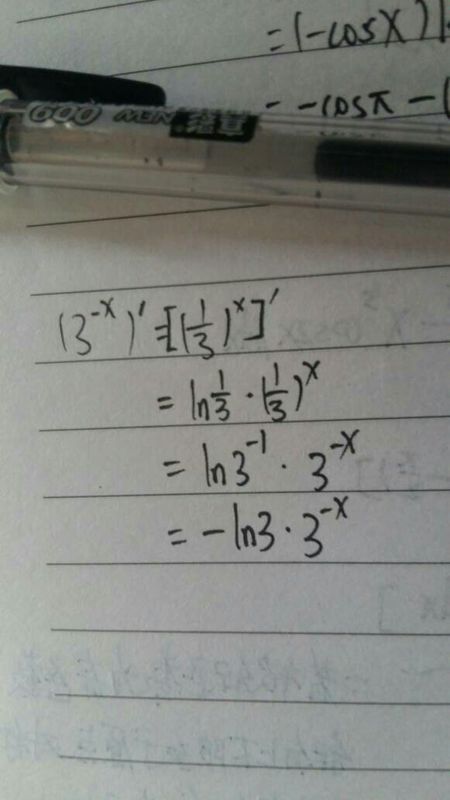 =(-cosx)|
= -cosπ-(
009 NEW
(3^{-x})'=[(1/3)^x]'
=ln 1/3 · (1/3)^x
=ln3^{-1} · 3^{-x}
=-ln3 · 3^{-x}